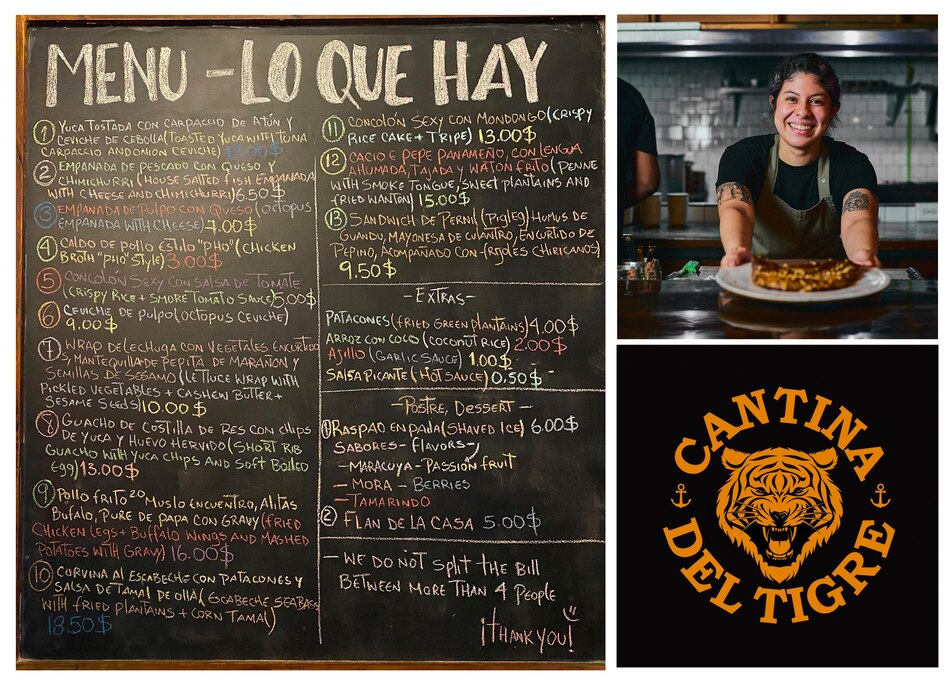 MENU - LO QUE HAY
① YUCA TOSTADA CON CARPACCIO DE ATÚN Y
CEVICHE DE CEBOLLA (TOASTED YUCA WITH TUNA
CARPACCIO AND ONION CEVICHE) 13.00$
② EMPANADA DE PESCADO CON QUESO Y
CHIMICHURRI (HOUSE SALTED FISH EMPANADA
WITH CHEESE AND CHIMICHURRI) 6.50$
③ EMPANADA DE PULPO CON QUESO (OCTOPUS
EMPANADA WITH CHEESE) 7.00$
④ CALDO DE POLLO ESTILO "PHO" (CHICKEN
BROTH "PHO" STYLE) 3.00$
⑤ CONCOLÓN SEXY CON SALSA DE TOMATE
(CRISPY RICE + SMOKE TOMATO SAUCE) 5.00$
⑥ CEVICHE DE PULPO (OCTOPUS CEVICHE)
9.00$
⑦ WRAP DE LECHUGA CON VEGETALES ENCURTIDO
S, MANTEQUILLA DE PEPITA DE MARAÑÓN Y
SEMILLAS DE SÉSAMO (LETTUCE WRAP WITH
PICKLED VEGETABLES + CASHEW BUTTER +
SESAME SEEDS) 10.00$
⑧ GUACHO DE COSTILLA DE RES CON CHIPS
DE YUCA Y HUEVO HERVIDO (SHORT RIB
GUACHO WITH YUCA CHIPS AND SOFT BOILED
EGG) 13.00$
⑨ POLLO FRITO MUSLO ENCUENTRO, ALITAS
BUFALO, PURE DE PAPA CON GRAVY (FRIED
CHICKEN LEGS + BUFFALO WINGS AND MASHED
POTATOES WITH GRAVY) 16.00$
⑩ CORVINA AL ESCABECHE CON PATACONES Y
SALSA DE TAMAL DE OLLA (ESCABECHE SEABASS
WITH FRIED PLANTAINS + CORN TAMAL)
18.50$
⑪ CONCOLÓN SEXY CON MONDONGO (CRISPY
RICE CAKE + TRIPE) 13.00$
⑫ CACIO E PEPE PANAMEÑO, CON LENGUA
AHUMADA, TAJADA Y WATON FRITO (PENNE
WITH SMOKE TONGUE, SWEET PLANTAINS AND
FRIED WANTON) 15.00$
⑬ SANDWICH DE PERNIL (PIGLEG) HUMUS DE
GUANDU, MAYONESA DE CULANTRO, ENCURTIDO DE
PEPINO, ACOMPAÑADO CON FRIJOLES CHIRICANOS)
9.50$
- EXTRAS -
PATACONES (FRIED GREEN PLANTAINS) 4.00$
ARROZ CON COCO (COCONUT RICE) 2.00$
AJILLO (GARLIC SAUCE) 1.00$
SALSA PICANTE (HOT SAUCE) 0.50$
- POSTRE, DESSERT -
① RASPAO EN PAILA (SHAVED ICE) 6.00$
SABORES - FLAVORS
- MARACUYA - PASSION FRUIT
- MORA - BERRIES
- TAMARINDO
② FLAN DE LA CASA 5.00$
- WE DO NOT SPLIT THE BILL
BETWEEN MORE THAN 4 PEOPLE
¡THANK YOU!
CANTINA
DEL TIGRE